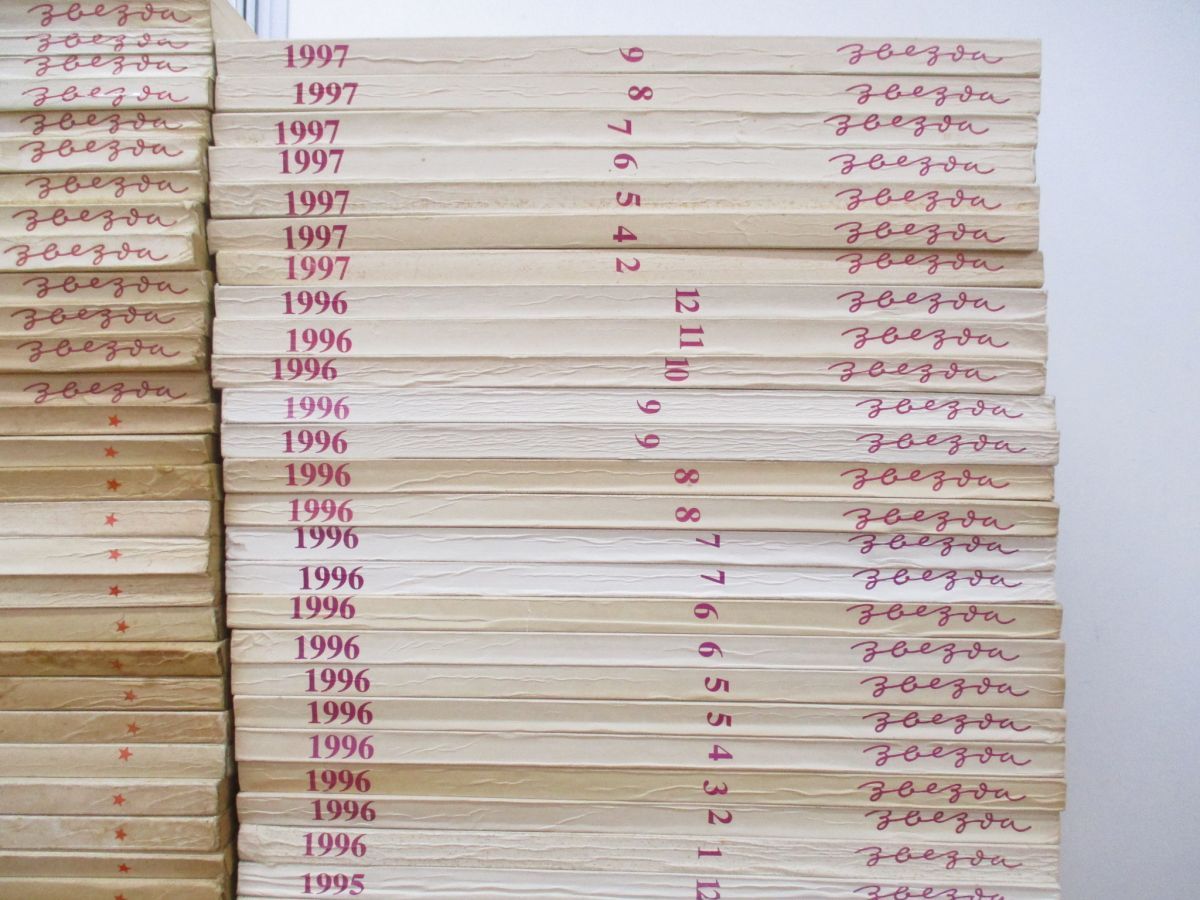 звезда
звезда
звезда
звезда
звезда
звезда
звезда
звезда
звезда
звезда
звезда
звезда
звезда
1997 9 звезда
1997 8 звезда
1997 7 звезда
1997 6 звезда
1997 5 звезда
1997 4 звезда
1997 2 звезда
1996 12 звезда
1996 11 звезда
1996 10 звезда
1996 9 звезда
1996 9 звезда
1996 8 звезда
1996 8 звезда
1996 7 звезда
1996 7 звезда
1996 6 звезда
1996 6 звезда
1996 5 звезда
1996 5 звезда
1996 4 звезда
1996 3 звезда
1996 2 звезда
1996 1 звезда
1995 12 звезда